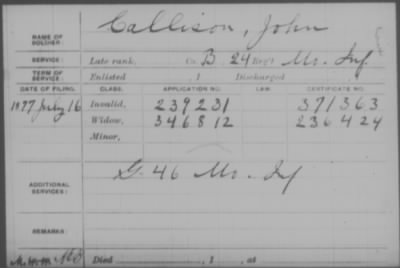 Callison, John
NAME OF SOLDIER:
SERVICE: Late rank, Co. B, 24 Reg't Mo. Inf.
TERM OF SERVICE: Enlisted , 1 Discharged , 1
DATE OF FILING. CLASS. APPLICATION NO. LAW. CERTIFICATE NO.
1877 July 16 Invalid, 239231 371363
Widow, 346812 236424
Minor,
G. 46 Mo. Inf
ADDITIONAL SERVICES:
REMARKS:
Died , 1 , at